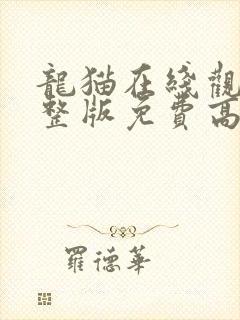 龍猫在綫觀
整版免費高
羅德華